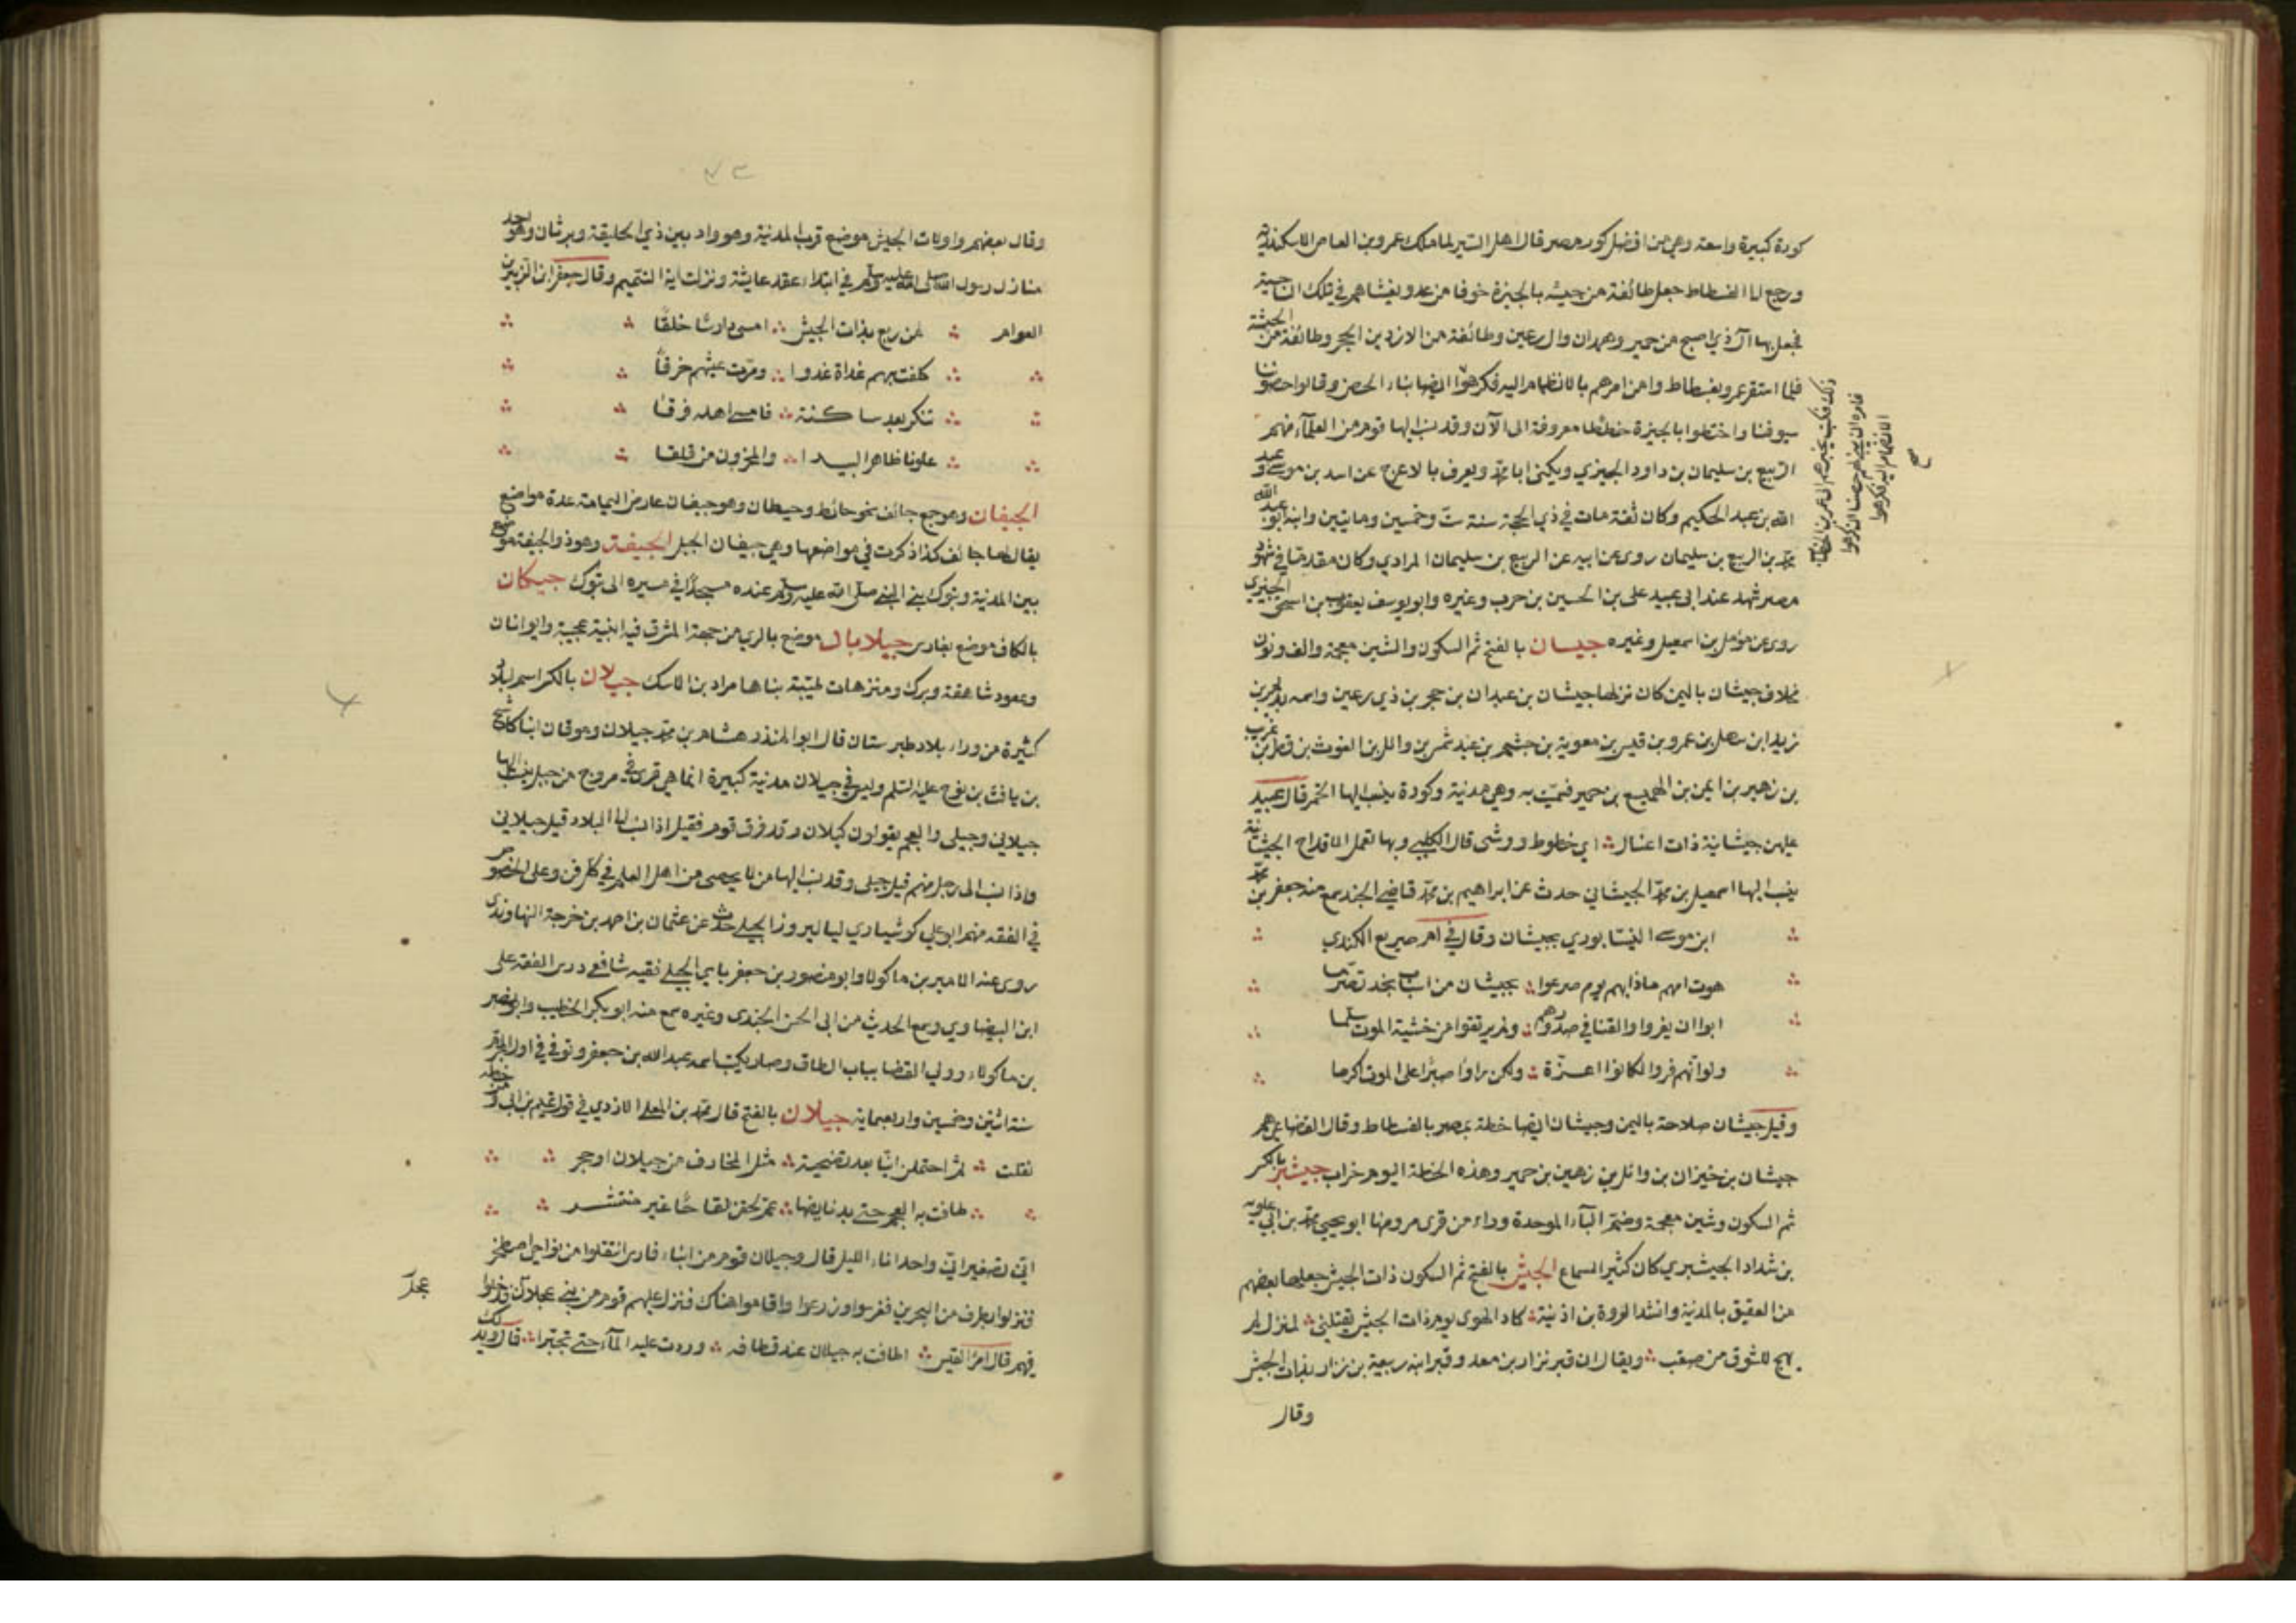 كورة كبيرة واسعة وهي من افضل كور مصر قال اهل السير لما ملك عمرو بن العاص الاسكندرية
ورجع الى الفسطاط جعل طائفة من جيشه بالجيزة خوفا من عدو يغشاهم في تلك الناحية
فجعل بها آل ذي اصبح من حمير وهمدان وال رعين وطائفة من الازد بن الحجر وطائفة من الحبشة
فلما استقر عمرو بفسطاط وامن امرهم بالانظمام اليه فكرهوا ايضا بناء الحصن وقالوا حصوننا
ذلك فكتب بخبرهم الى عمر بن الخطاب
فامره ان يبني لهم حصنا ان كرهوا
الانضمام اليه فكرهوا
صح
سيوفنا واختطوا بالجيزة خططا معروفة الى الآن وقد نسب اليها قوم من العلمآء منهم
الربيع بن سليمان بن داود الجيزي ويكنى ابا محمد ويعرف بالاعرج عن اسد بن موسى وعبد
الله بن عبد الحكيم وكان ثقة مات في ذي الحجة سنة ست وخمسين ومايتين وابنه ابو عبد الله
محمد بن الربيع بن سليمان روى عن ابيه عن الربيع بن سليمان المرادي وكان مقدما في شهود
مصر شهد عند ابي عبيد علي بن الحسين بن حرب وغيره وابو يوسف يعقوب بن اسحق الجيزي
روى عن مؤمل بن اسمعيل وغيره جيشان بالفتح ثم السكون والشين معجمة والف ونون
مخلاف جيشان باليمن كان نزلها جيشان بن عبدان بن حجر بن ذي رعين واسمه يريم بن
زيد ابن سهل بن عمرو بن قيس بن معوية بن جشم بن عبد شمس بن وائل بن الغوث بن قطن بن عريب
بن زهير بن ايمن بن الهميع بن حمير فسميت به وهي مدينة وكورة ينسب اليها الخمر قال عبيد
عليهن جيشانية ذات اغسال ؞ اي خطوط ووشى قال الكلبي وبها تعمل الاقداح الجيشانية
ينسب اليها اسمعيل بن محمد الجيشاني حدث عن ابراهيم بن محمد قاضي الجند سمع منه جعفر بن محمد
ابن موسى النيسابوري بجيشان وقال في ام صريع الكندي
هوت امهم ماذا بهم يوم صرعوا ؞ بجيشان من اسباب مجد تصرما
ابوا ان يفروا والقنا في صدورهم ؞ ولم يرتقوا من خشية الموت سلما
ولو انهم فروا لكانوا اعزة ؞ ولكن راوا صبرا على الموت اكرما
وقيل جيشان ملاحة باليمن وجيشان ايضا خطة بمصر بالفسطاط وقال القضاعي هم
جيشان بن خيران بن وائل بن زهير بن حمير وهذه الخطة اليوم خراب جيشبر بالكسر
ثم السكون وشين معجمة وضم البآء الموحدة وراء من قرى مرو منها ابو يحيى محمد بن ابي علوية
بن شداد الجيشبري كان كثير السماع الجيش بالفتح ثم السكون ذات الجيش جعلها بعضهم
من العقيق بالمدينة وانشد لعروة بن اذينة ؞ كاد الهوى يوم ذات الجيش يقتلني ؞ لمنزل لم
يهج للشوق من صقب ؞ ويقال ان قبر نزار بن معد وقبر ابنه ربيعة بن نزار بذات الجيش
وقال
وقال بعضهم واولات الجيش موضع قرب المدينة وهو واد بين ذي الحليفة وبرثان وهو احد
منازل رسول الله صلى الله عليه وسلم في ابتداء عقد عايشة ونزلت اية التيمم وقال جعفر ابن الزبير بن
العوام ؞ لمن ربع بذات الجيش ؞ امسى دارسا خلقا
كلفت بهم غداة غدوا ؞ ومرت عيسهم خرقا
تنكر بعد ساكنة ؞ فامسى اهله فرقا
علونا ظاهر البيدا ؞ والمحزون من قلقا
الجيفان وهو جمع جائف نحو حائط وحيطان وهو جيفان عارض اليمامة عدة مواضع
يقال لها جائف كذا ذكرت في مواضعها وهي جيفان الجبل الجيفة وهو ذو الجيفة موضع
بين المدينة وتبوك بنى النبي صلى الله عليه وسلم عنده مسجدا في مسيره الى تبوك جيكان
بالكاف موضع بفارس جيلاباد موضع بالري من جهة المشرق فيه ابنية عجيبة وايوانان
وعمود شاهقة وبرك ومنزهات طيبة بناها مراد بن لاسك جيلان بالكسر اسم لبلاد
كثيرة من وراء بلاد طبرستان قال ابو المنذر هشام بن محمد جيلان وموقان ابنا كاشح
بن يافث بن نوح عليه السلم وليس في جيلان مدينة كبيرة انما هي قرى في مروج من جبل ينسب اليها
جيلاني وجيلي والعجم يقولون كيلان وقد فرق قوم فقيل اذا نسب الى البلاد قيل جيلاني
واذا نسب الى رجل منهم قيل جيلي وقد نسب اليها من لا يحصى من اهل العلم في كل فن وعلى الخصوص
في الفقه منهم ابو علي كوشيار بن لياليروز الجيلي حدث عن عثمان بن احمد بن خرجة النهاوندي
روى عنه الامير بن ماكولا وابو منصور بن جعفر باي الجيلي فقيه شافعي درس الفقه على
ابن البيضاوي وسمع الحديث من ابي الحسن الجندي وغيره سمع منه ابو بكر الخطيب وابو نصر
بن ماكولاء وولي القضا بباب الطاق وصار يكتب اسمه عبد الله بن جعفر وتوفي في اول المحرم
سنة اثنين وخمسين واربعماية جيلان بالفتح قال محمد بن المعلى الازدي في قول تميم بن ابي
نقلت ؞ ثم احتملن انيا بعد تضحية ؞ مثل المخارف من جيلان او هجر
طافت به العجم حتى بد ناهضها ؞ عم لحقن لقاحا غير منتشر
اني تصغير اني واحد اناء الليل قال وجيلان قوم من ابناء فارس انتقلوا من نواحي اصطخر
فنزلوا بطرف من البحرين فغرسوا وزرعوا واقاموا هناك فنزل عليهم قوم من بني عجل فدخلوا
عجل
فيهم قال امرؤ القيس ؞ اطافت به جيلان عند قطافه ؞ وردت عليه المآء حتى تحيرا ؞